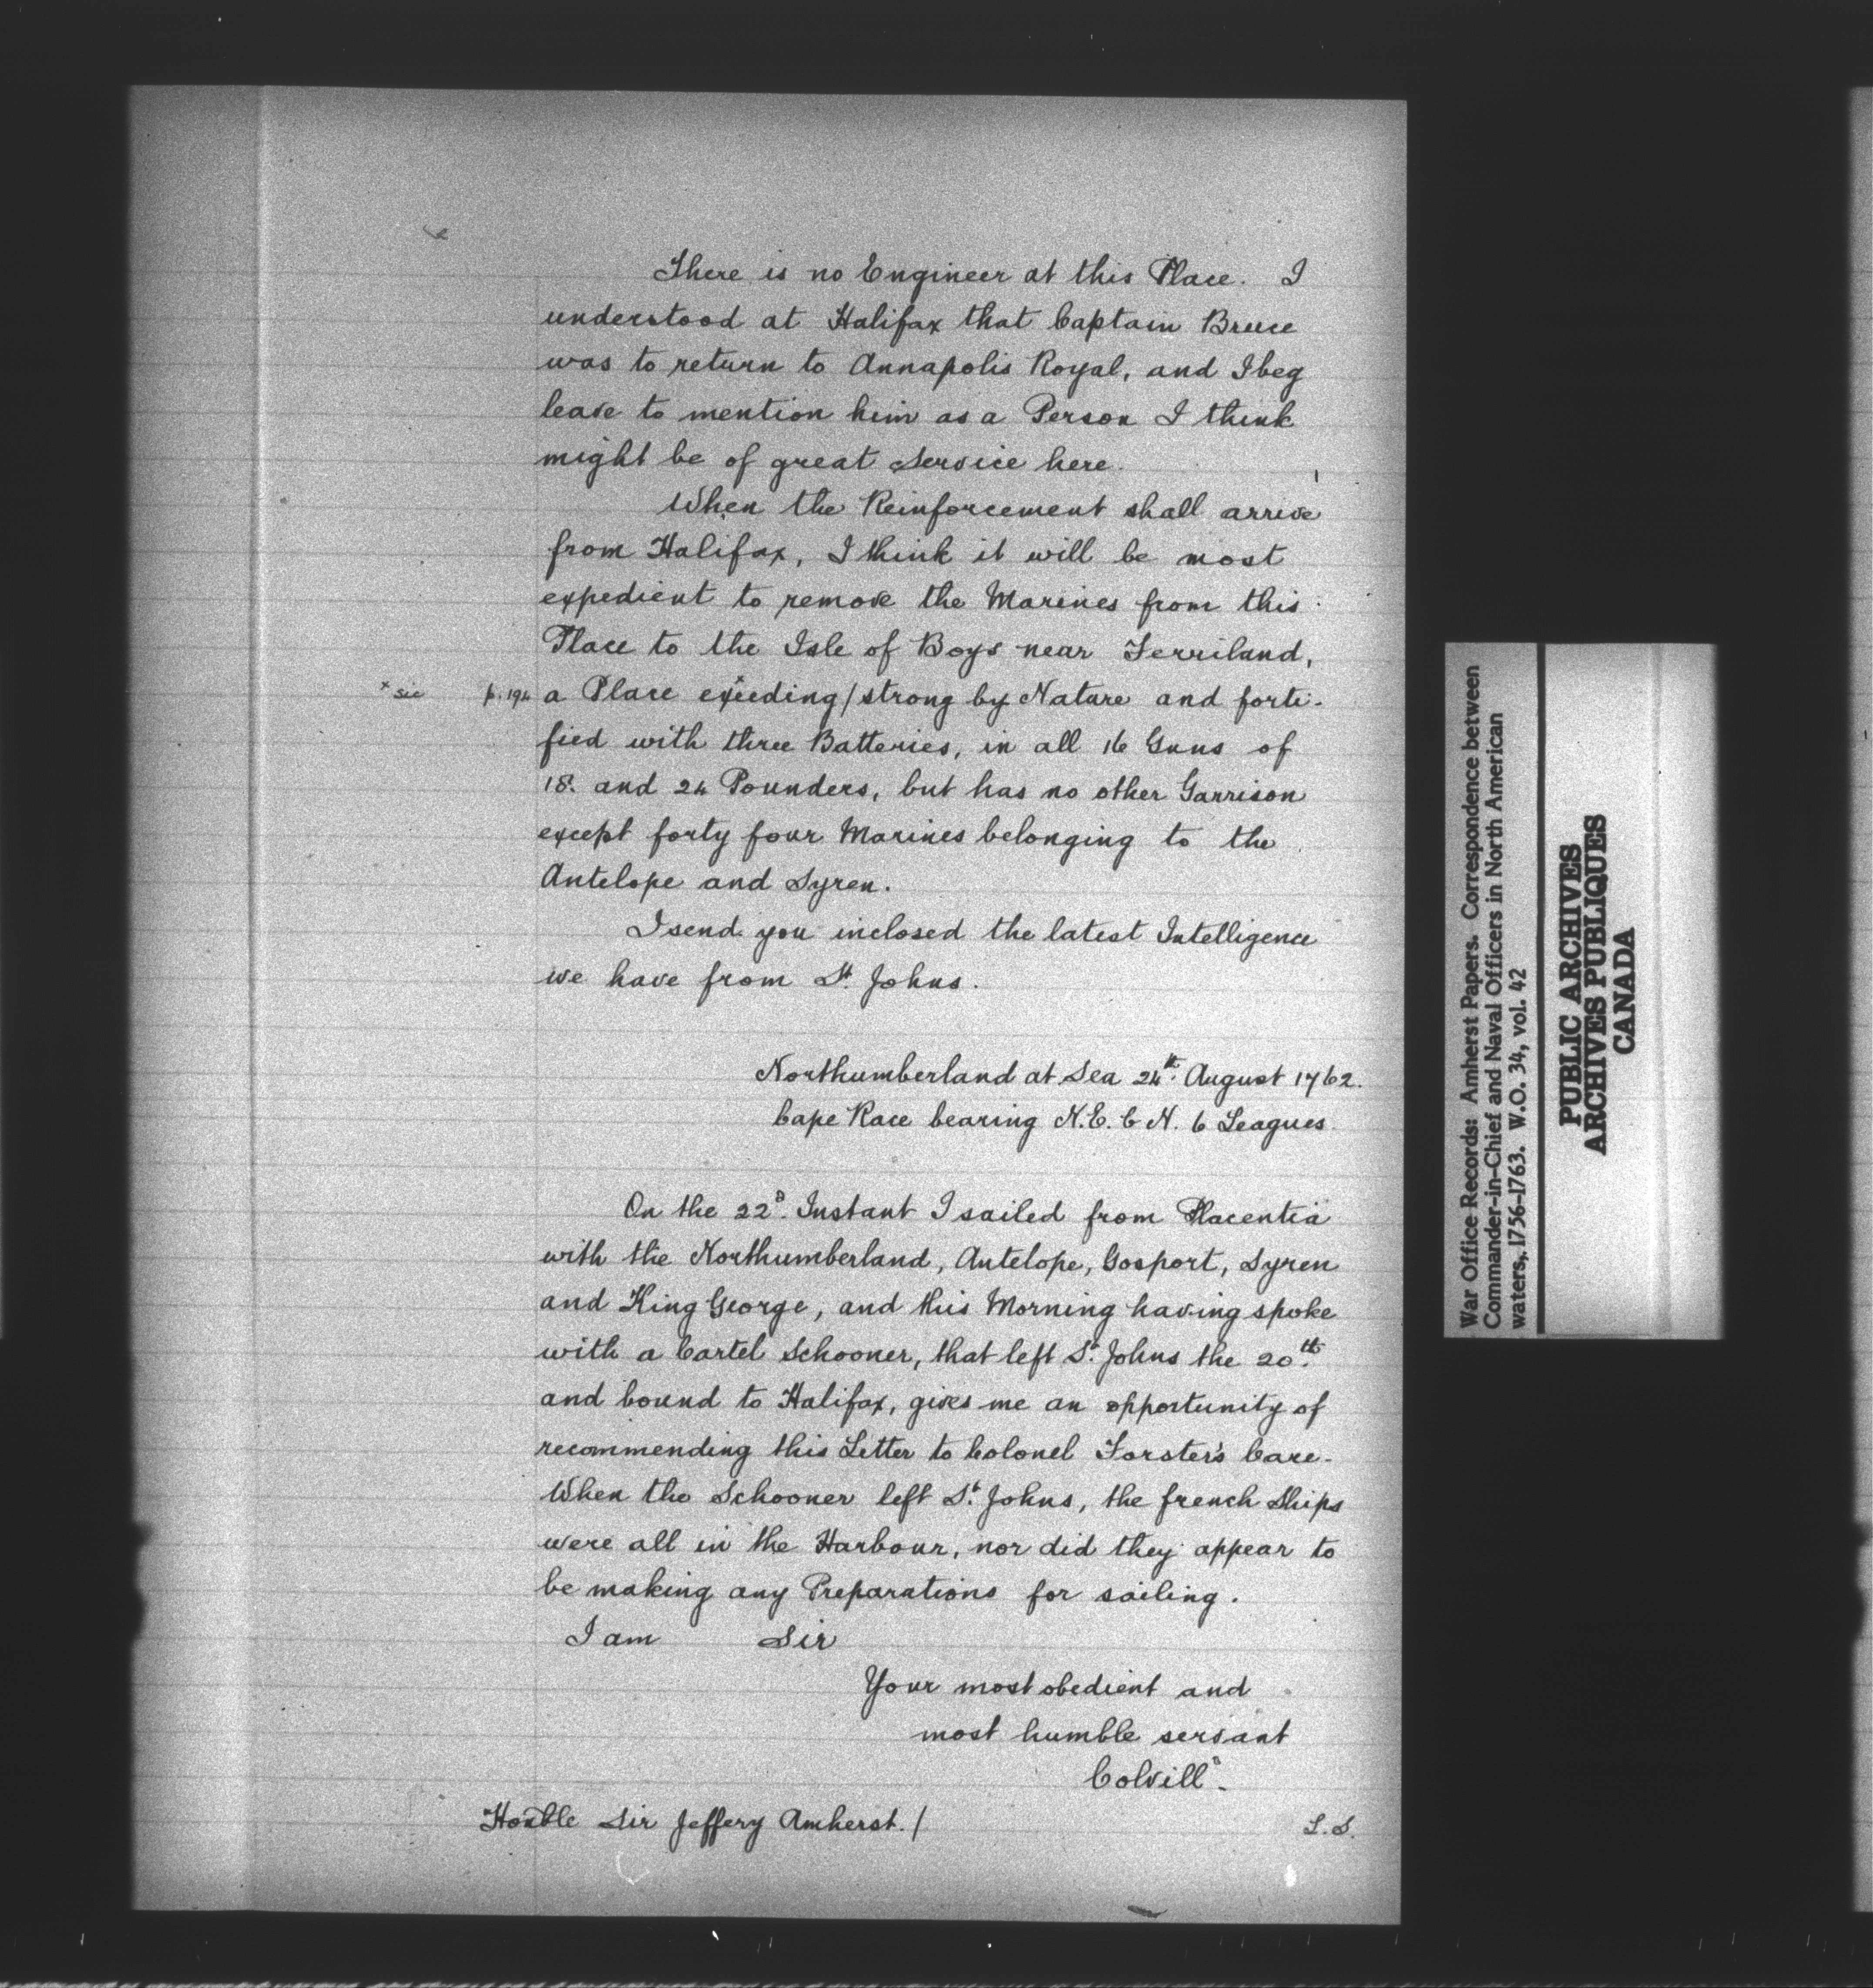 There is no Engineer at this Place. I
understood at Halifax that Captain Bruce
was to return to Annapolis Royal, and I beg
leave to mention him as a Person I think
might be of great Service here.
When the Reinforcement shall arrive
from Halifax, I think it will be most
expedient to remove the Marines from this
Place to the Isle of Boys near Ferriland,
* sic p. 194 a Place exceeding / strong by Nature and forti-
fied with three Batteries, in all 16 Guns of
18. and 24 Pounders, but has no other Garrison
except forty four Marines belonging to the
Antelope and Syren.
I send you inclosed the latest Intelligence
we have from St. Johns.
Northumberland at Sea 24th. August 1762.
Cape Race bearing N.E. b N. 6 Leagues
On the 22d. Instant I sailed from Placentia
with the Northumberland, Antelope, Gosport, Syren
and King George, and this Morning having spoke
with a Cartel Schooner, that left St. Johns the 20th.
and bound to Halifax, gives me an opportunity of
recommending this Letter to Colonel Forster's Care.
When the Schooner left St. Johns, the french Ships
were all in the Harbour, nor did they appear to
be making any Preparations for sailing.
I am Sir
Your most obedient and
most humble servant
Colvill
Honble Sir Jeffery Amherst. /
L.S.
War Office Records: Amherst Papers. Correspondence between
Commander-in-Chief and Naval Officers in North American
waters, 1756-1763. W.O. 34, vol. 42
PUBLIC ARCHIVES
ARCHIVES PUBLIQUES
CANADA